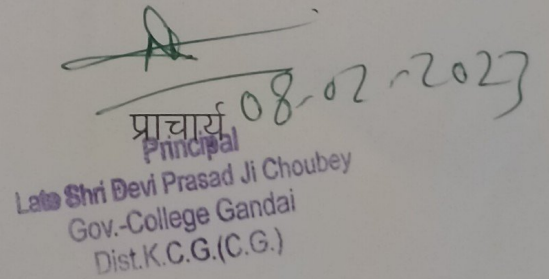 08-02-2023
प्राचार्य
Principal
Late Shri Devi Prasad Ji Choubey
Gov.-College Gandai
Dist.K.C.G.(C.G.)